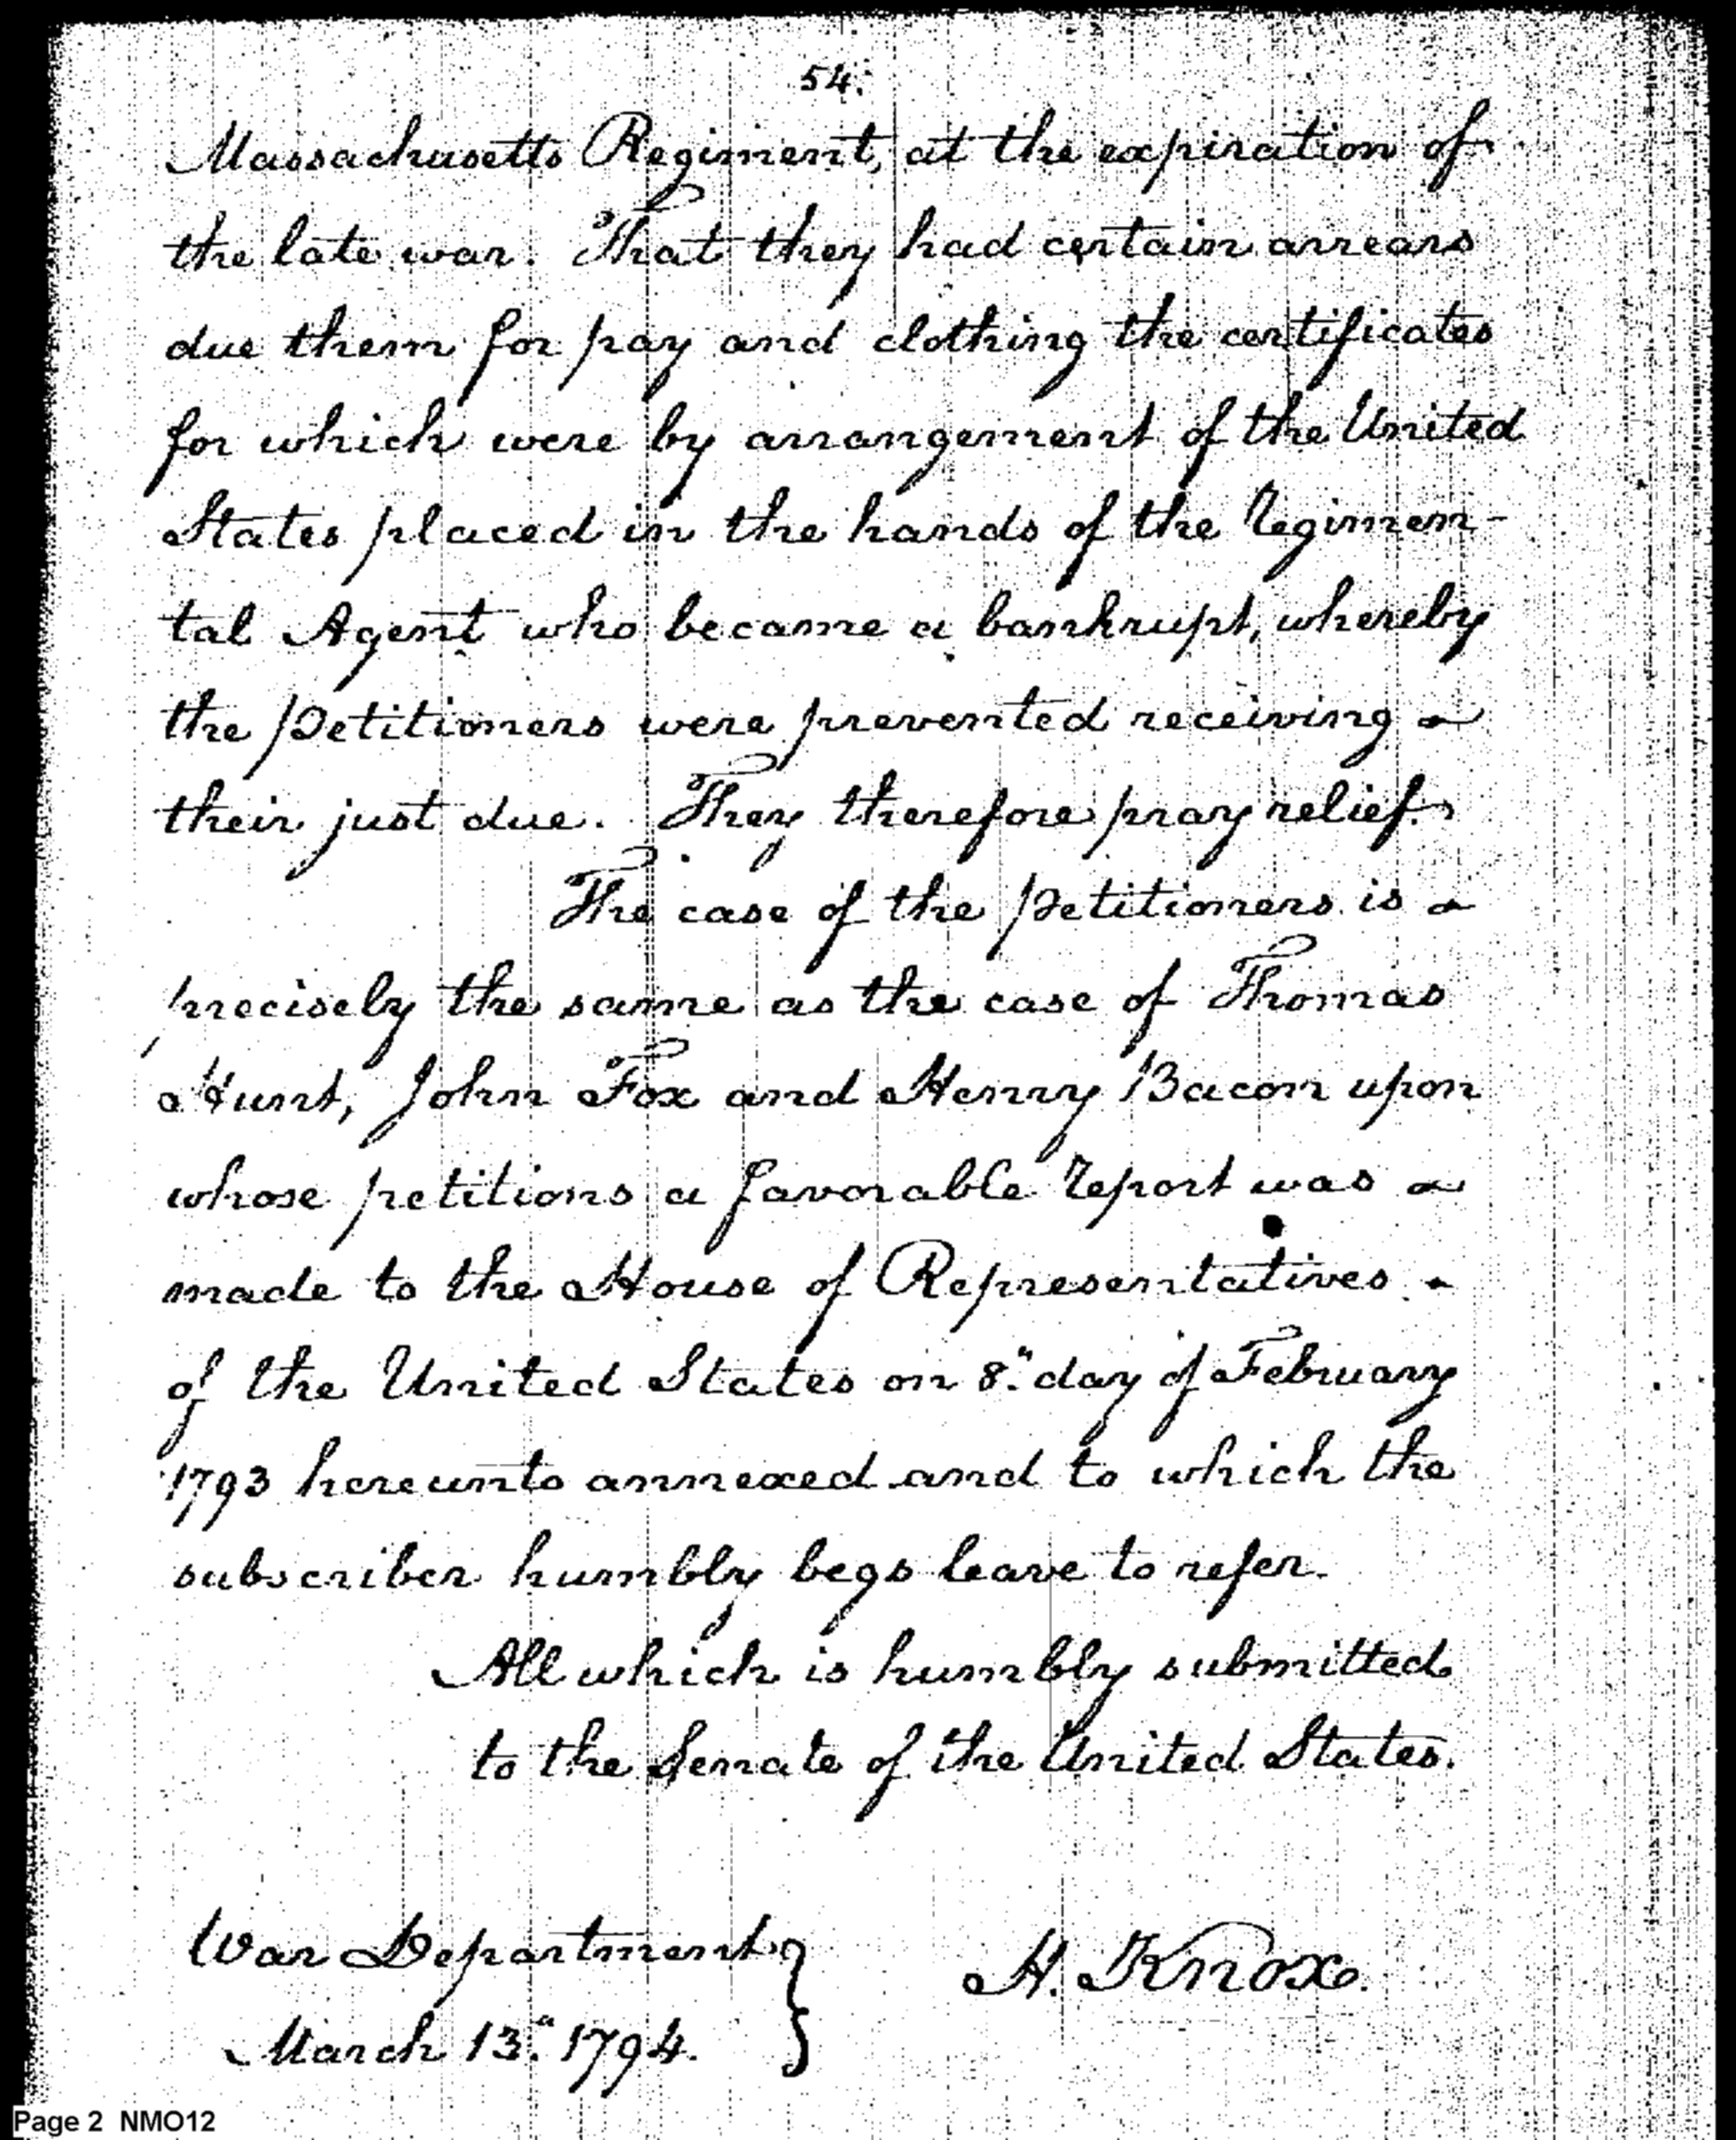 54.
Massachusetts Regiment, at the expiration of
the late war. That they had certain arrears
due them for pay and clothing the certificates
for which were by arrangement of the United
States placed in the hands of the Regimen-
tal Agent who became a bankrupt, whereby
the petitioners were prevented receiving
their just due. They therefore pray relief.
The case of the petitioners is
precisely the same as the case of Thomas
Hunt, John Fox and Henry Bacon upon
whose petitions a favorable report was
made to the House of Representatives
of the United States on 8." day of February
1793 hereunto annexed and to which the
subscriber humbly begs leave to refer.
All which is humbly submitted
to the Senate of the United States.
War Department }
March 13." 1794.
H. Knox.
Page 2 NMO12